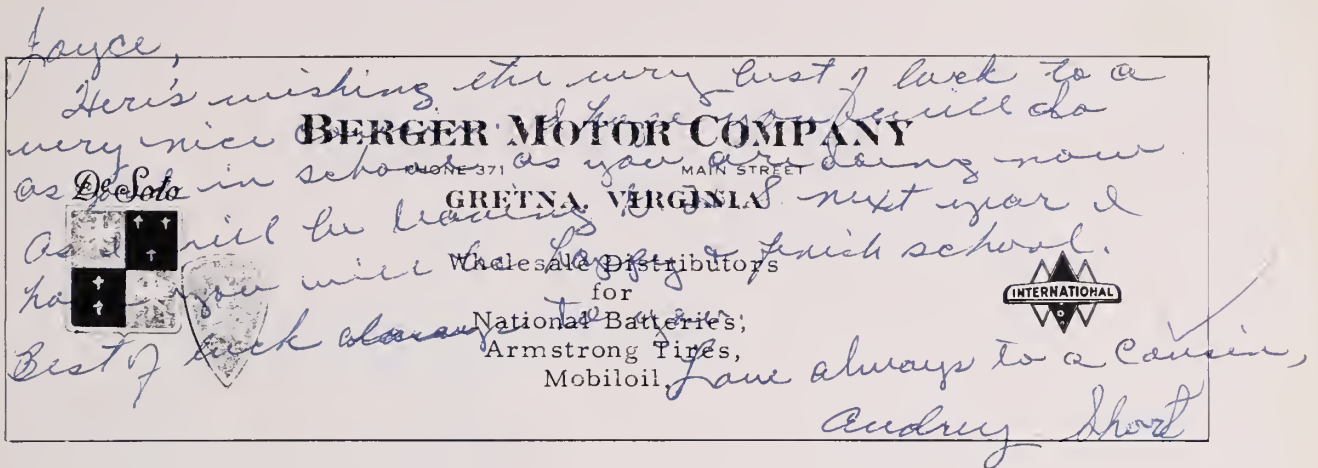 Joyce,
Here's wishing the very best of luck to a
very nice I hope you will do
as good in school as you are doing now
As I will be leaving G H S next year I
hope you will be happy & finish school.
Best of luck always to you.
Love always to a Cousin,
Audrey Short
BERGER MOTOR COMPANY
PHONE 371 MAIN STREET
GRETNA, VIRGINIA
De Soto
Wholesale Distributors
for
National Batteries,
Armstrong Tires,
Mobiloil
INTERNATIONAL